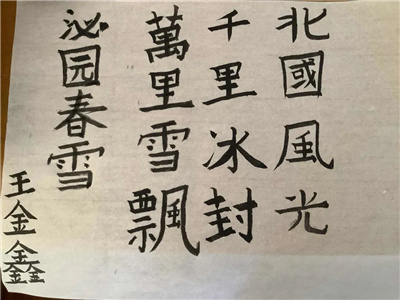 北國風光
千里冰封
萬里雪飄
泌园春雪
王金鑫